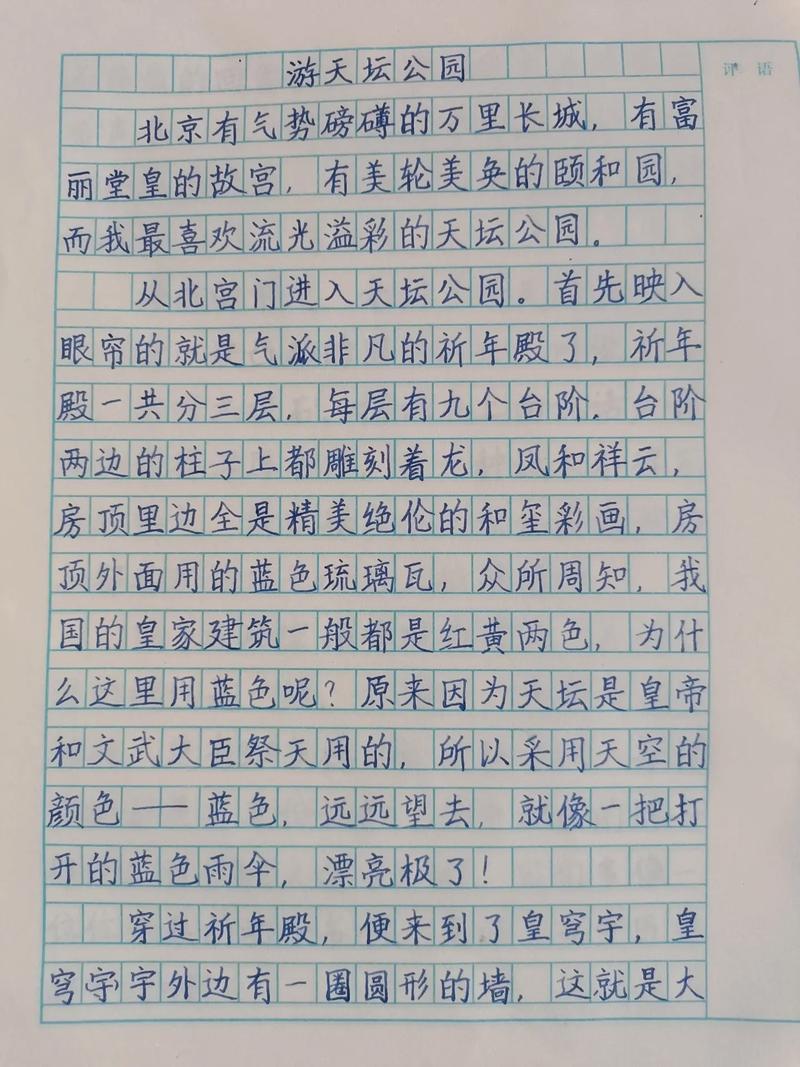 游天坛公园
评语
北京有气势磅礴的万里长城，有富
丽堂皇的故宫，有美轮美奂的颐和园，
而我最喜欢流光溢彩的天坛公园。
从北宫门进入天坛公园。首先映入
眼帘的就是气派非凡的祈年殿了，祈年
殿一共分三层，每层有九个台阶．台阶
两边的柱子上都雕刻着龙，凤和祥云，
房顶里边全是精美绝伦的和玺彩画，房
顶外面用的蓝色琉璃瓦，众所周知，我
国的皇家建筑一般都是红黄两色，为什
么这里用蓝色呢？原来因为天坛是皇帝
和文武大臣祭天用的，所以采用天空的
颜色——蓝色，远远望去，就像一把打
开的蓝色雨伞，漂亮极了！
穿过祈年殿，便来到了皇穹宇，皇
穹宇外边有一圈圆形的墙，这就是大